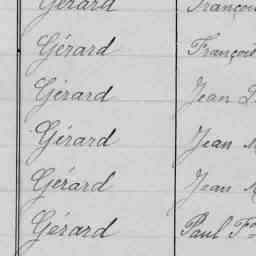 Gérard François
Gérard François
Gérard Jean
Gérard Jean
Gérard Jean
Gérard Paul Fois